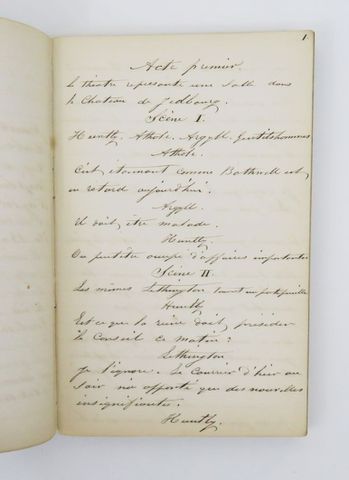 1
Acte premier.
Le théatre represente une salle dans
le Chateau de Jedbourg.
Scène I.
Huntly, Athole, Argyll, gentilshommes
Athole.
C'est étonnant comme Bothwell est
en retard aujourd'hui.
Argyll.
Il doit être malade.
Huntly.
Ou peutêtre occupé d'affaires importantes
Scène II.
Les mêmes Lethington tenant un portefeuille
Huntly
Est ce que la reine doit présider
le Conseil ce matin?
Lethington
Je l'ignore. Le Courrier d'hier au
soir n'a apporté que des nouvelles
insignifiantes.
Huntly.